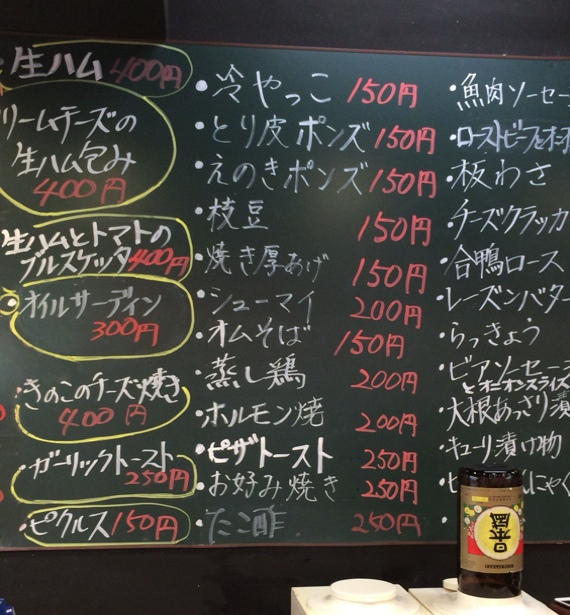 生ハム 400円
リームチーズの
生ハム包み
400円
生ハムとトマトの
ブルスケッタ 400円
オイルサーディン
300円
きのこのチーズ焼き
400円
・ガーリックトースト
250円
・ピクルス 150円
・冷やっこ 150円
・とり皮ポンズ 150円
・えのきポンズ 150円
・枝豆 150円
・焼き厚あげ 150円
・シューマイ 200円
・オムそば 150円
・蒸し鶏 200円
・ホルモン焼 200円
・ピザトースト 250円
・お好み焼き 250円
・たこ酢 250円
・魚肉ソーセー
・ローストビーフ
・板わさ
・チーズクラッカ
・合鴨ロース
・レーズンバター
・らっきょう
・ビアソーセージ
とオニオンスライス
・大根あっさり漬
・キューリ漬け物
日本盛